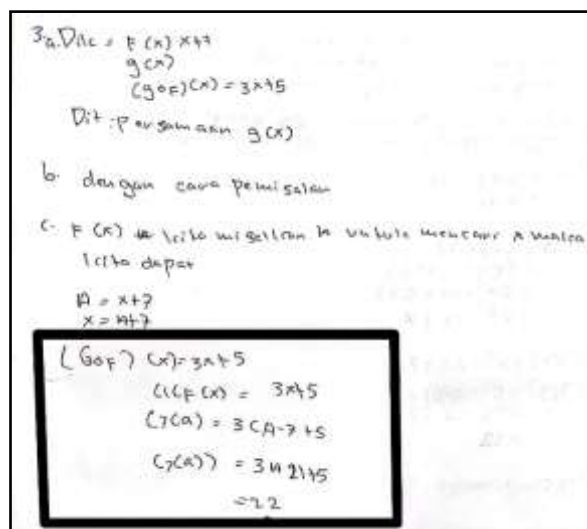 3.a. Dik = F(x) x+7
g(x)
(goF)(x) = 3x+5
Dit : persamaan g(x)
b. dengan cara pemisalan
c. F(x) kita misalkan A untuk mencari x maka
kita dapat
A = x+7
x = A+7
(GoF) (x) = 3x+5
G(F(x) = 3x+5
G(a) = 3(A-7+5
G(a)) = 3A 21+5
= 22